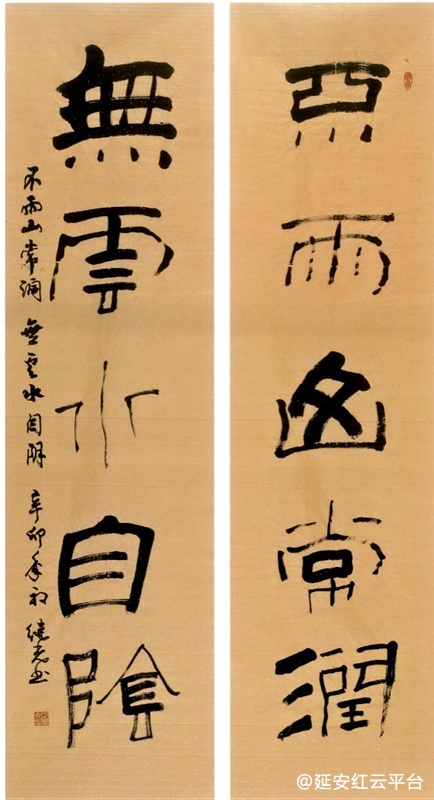 不雨山常潤
無雲水自陰
不雨山常润 無雲水自阴 辛卯年初 继书
@延安红云平台